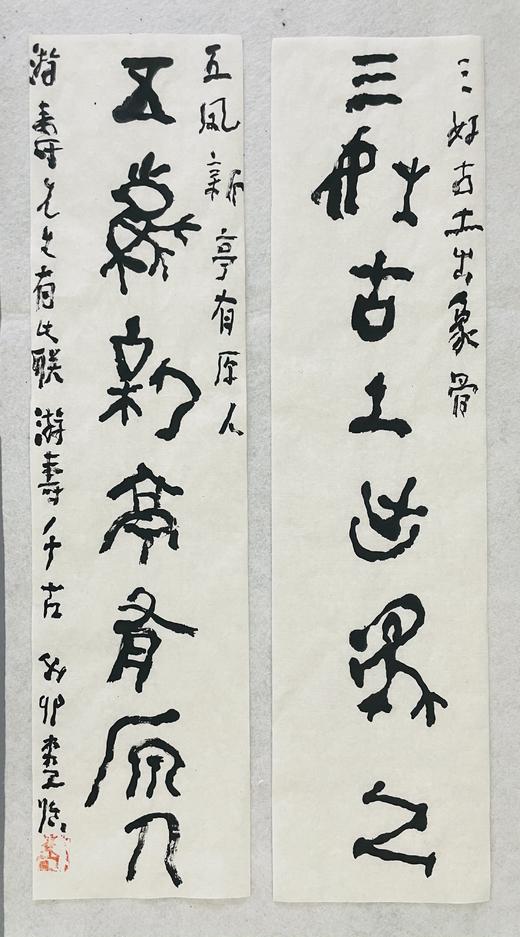 三好古土出象骨
三好古土出象骨
五凤新亭有原人
五鳳新亭有原人
游寿先生有此联 游寿千古 癸卯 临